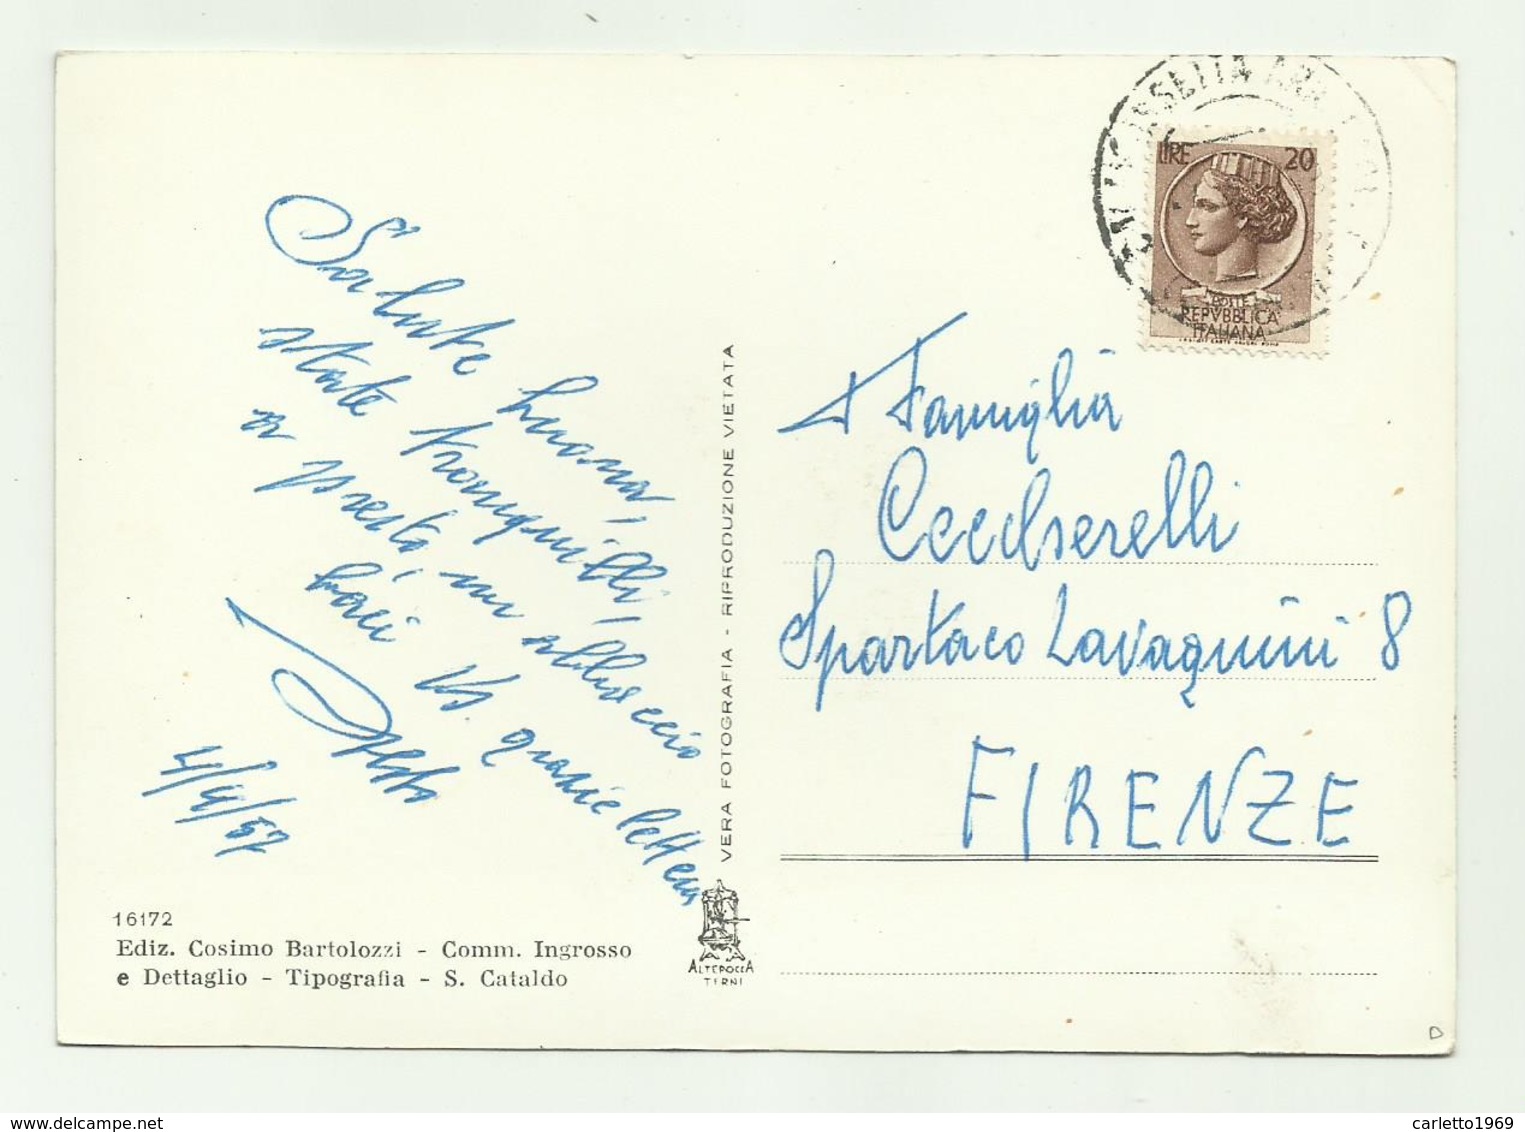 Salute buona,
state tranquilli,
a presto, un abbraccio
baci Vs grazie lettera
4/4/57
16172
Ediz. Cosimo Bartolozzi - Comm. Ingrosso
e Dettaglio - Tipografia - S. Cataldo
VERA FOTOGRAFIA - RIPRODUZIONE VIETATA
ALTEROCCA
TERNI
LIRE 20
POSTE
REPVBBLICA
ITALIANA
Famiglia
Ceccherelli
Spartaco Lavagnini 8
FIRENZE
D
carletto1969
www.delcampe.net